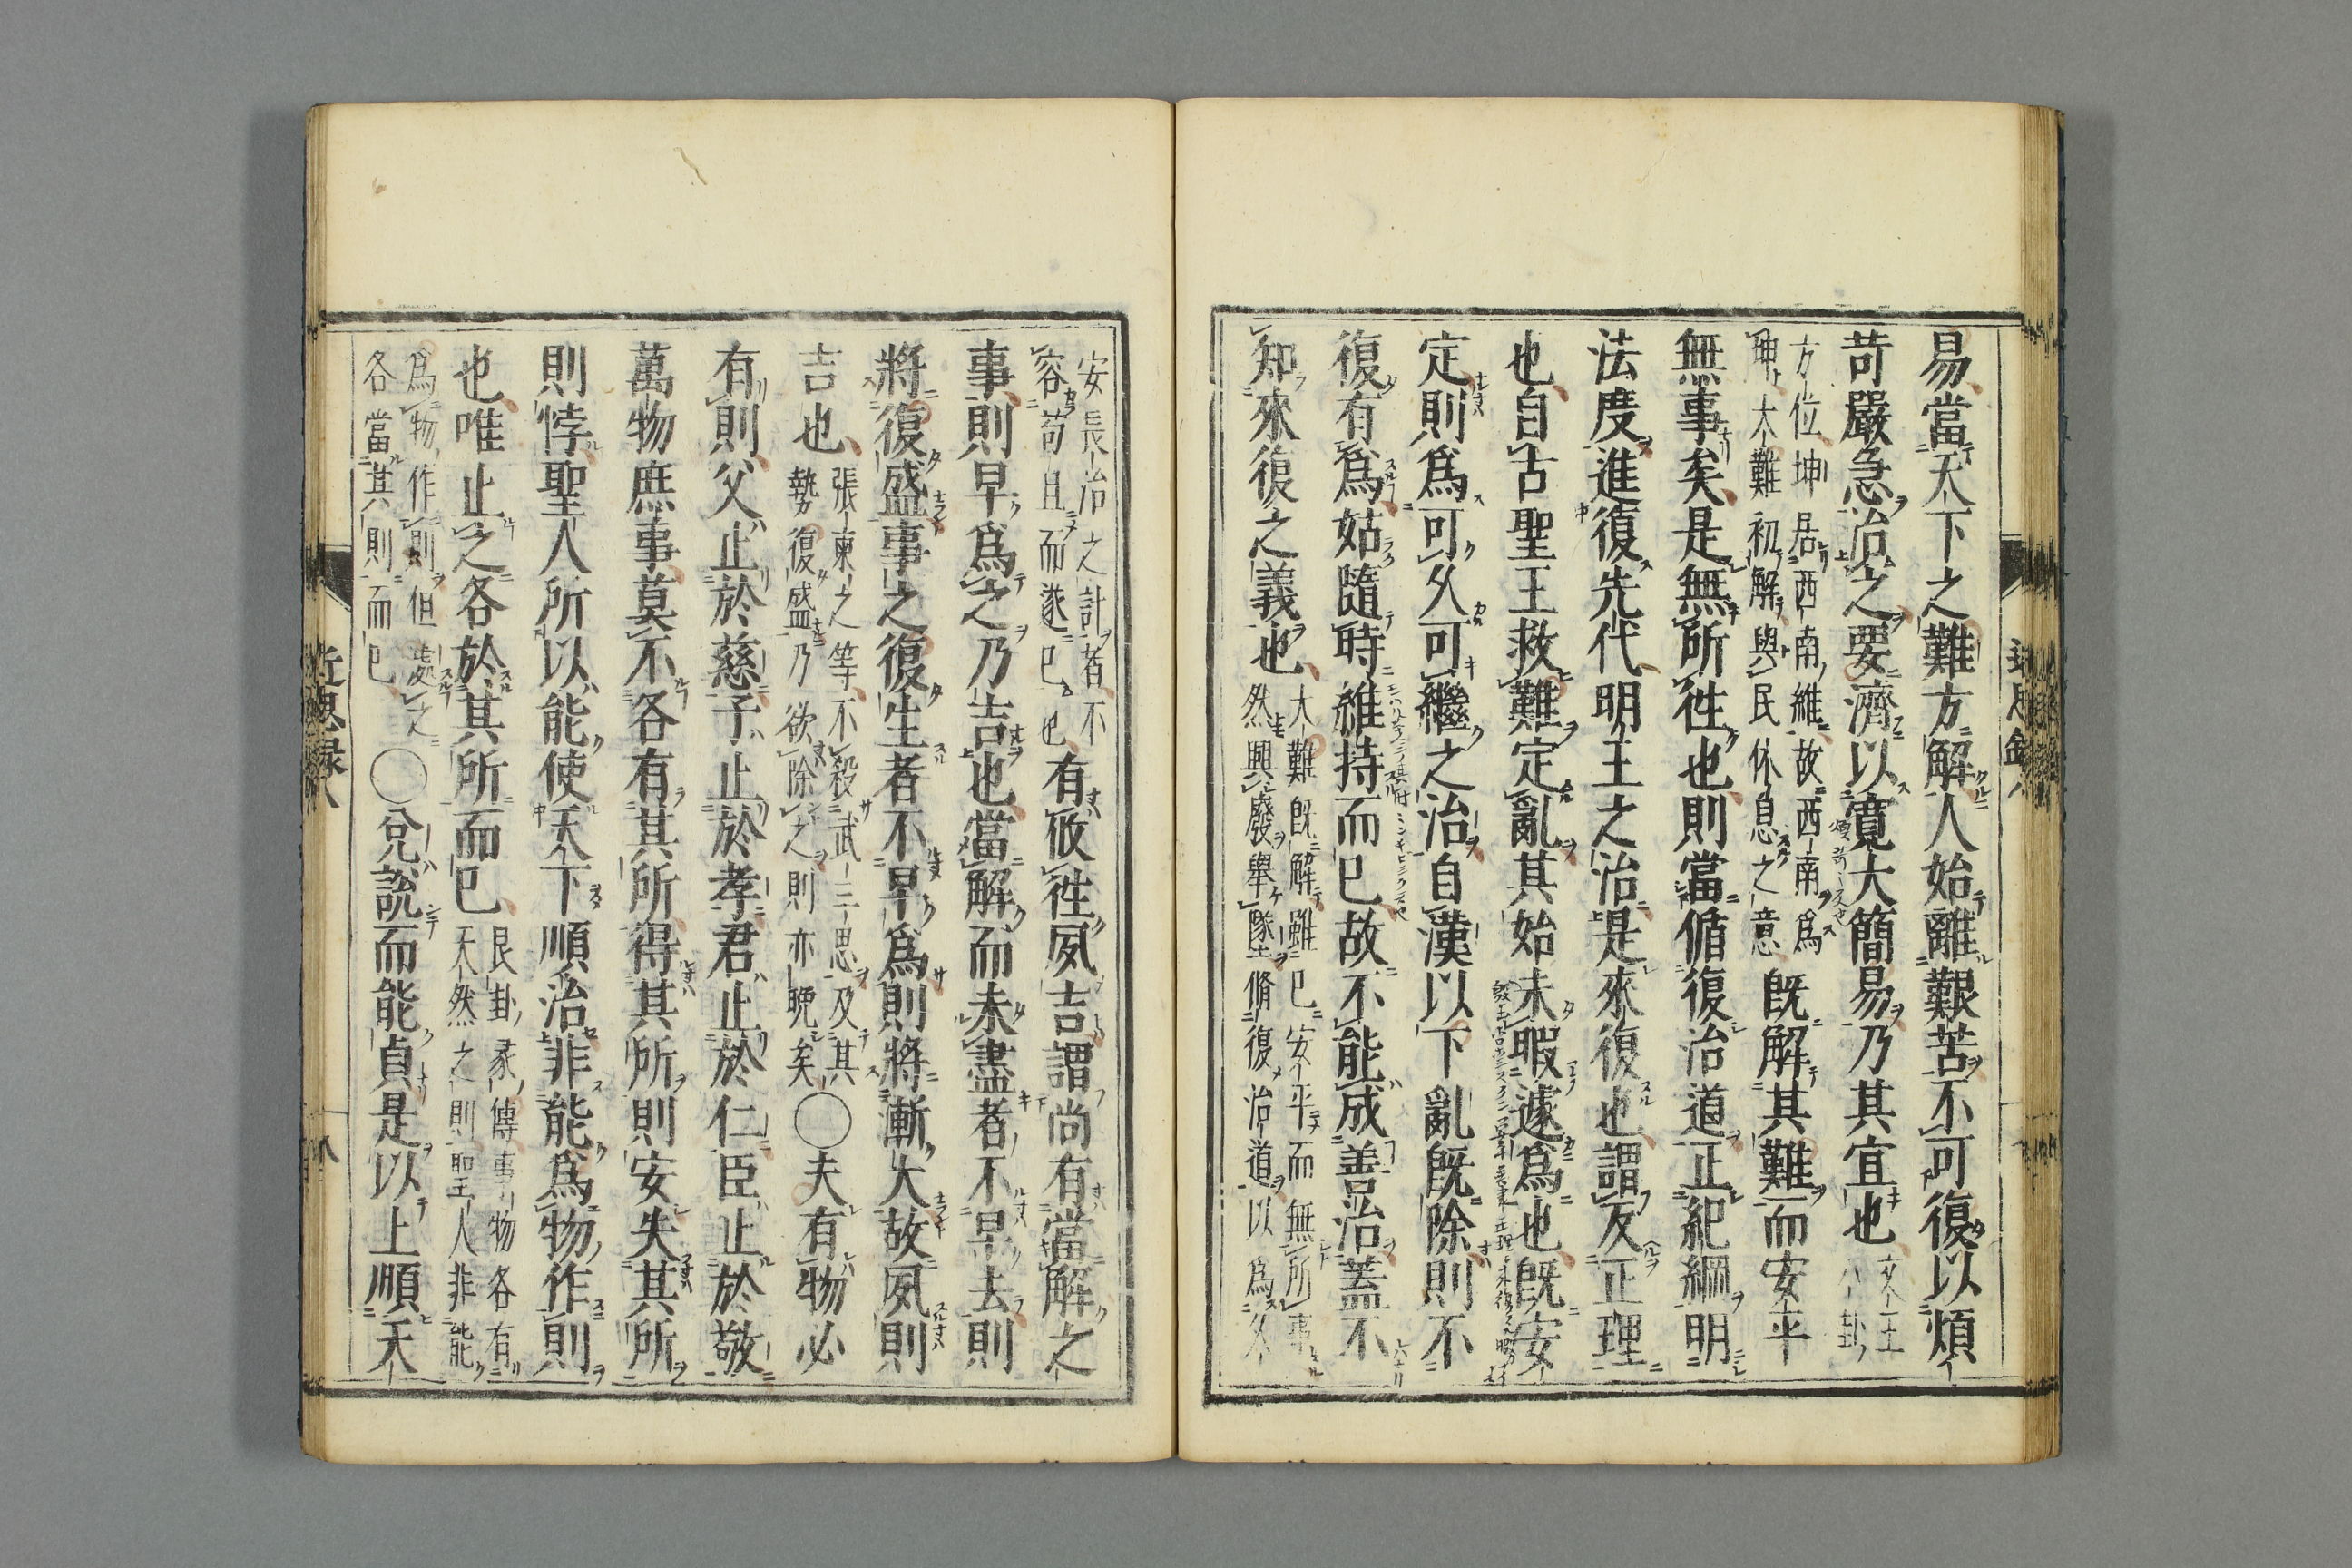 易當天下之難方解人始離艱苦不可復以煩
苛嚴急治之要濟以寛大簡易乃其宜也 文王八卦
方位坤居西南維故西南爲
坤大難初解與民休息之意 既解其難而安平
無事矣是無所徃也則當脩復治道正紀綱明
法度進復先代明王之治是來復也謂反正理
也自古聖王救難定亂其始未暇遽爲也既安
定則爲可久可繼之治自漢以下亂既除則不
復有爲姑隨時維持而已故不能成善治蓋不
知來復之義也 大難既解雖已安平而無所事
然興廢舉墜脩復治道以爲久
安長治之計者不
容苟且而遂已也 有攸徃夙吉謂尚有當解之
事則早爲之乃吉也當解而未盡者不早去則
將復盛事之復生者不早爲則將漸大故夙則
吉也 張柬之等不殺武三思及其
勢復盛乃欲除之則亦晩矣 ○夫有物必
有則父止於慈子止於孝君止於仁臣止於敬
萬物庶事莫不各有其所得其所則安失其所
則悖聖人所以能使天下順治非能爲物作則
也唯止之各於其所而已 艮卦彖傳事物各有
天然之則聖人非能
爲物作則但處之
各當其則而已 ○兌說而能貞是以上順天
近思録八